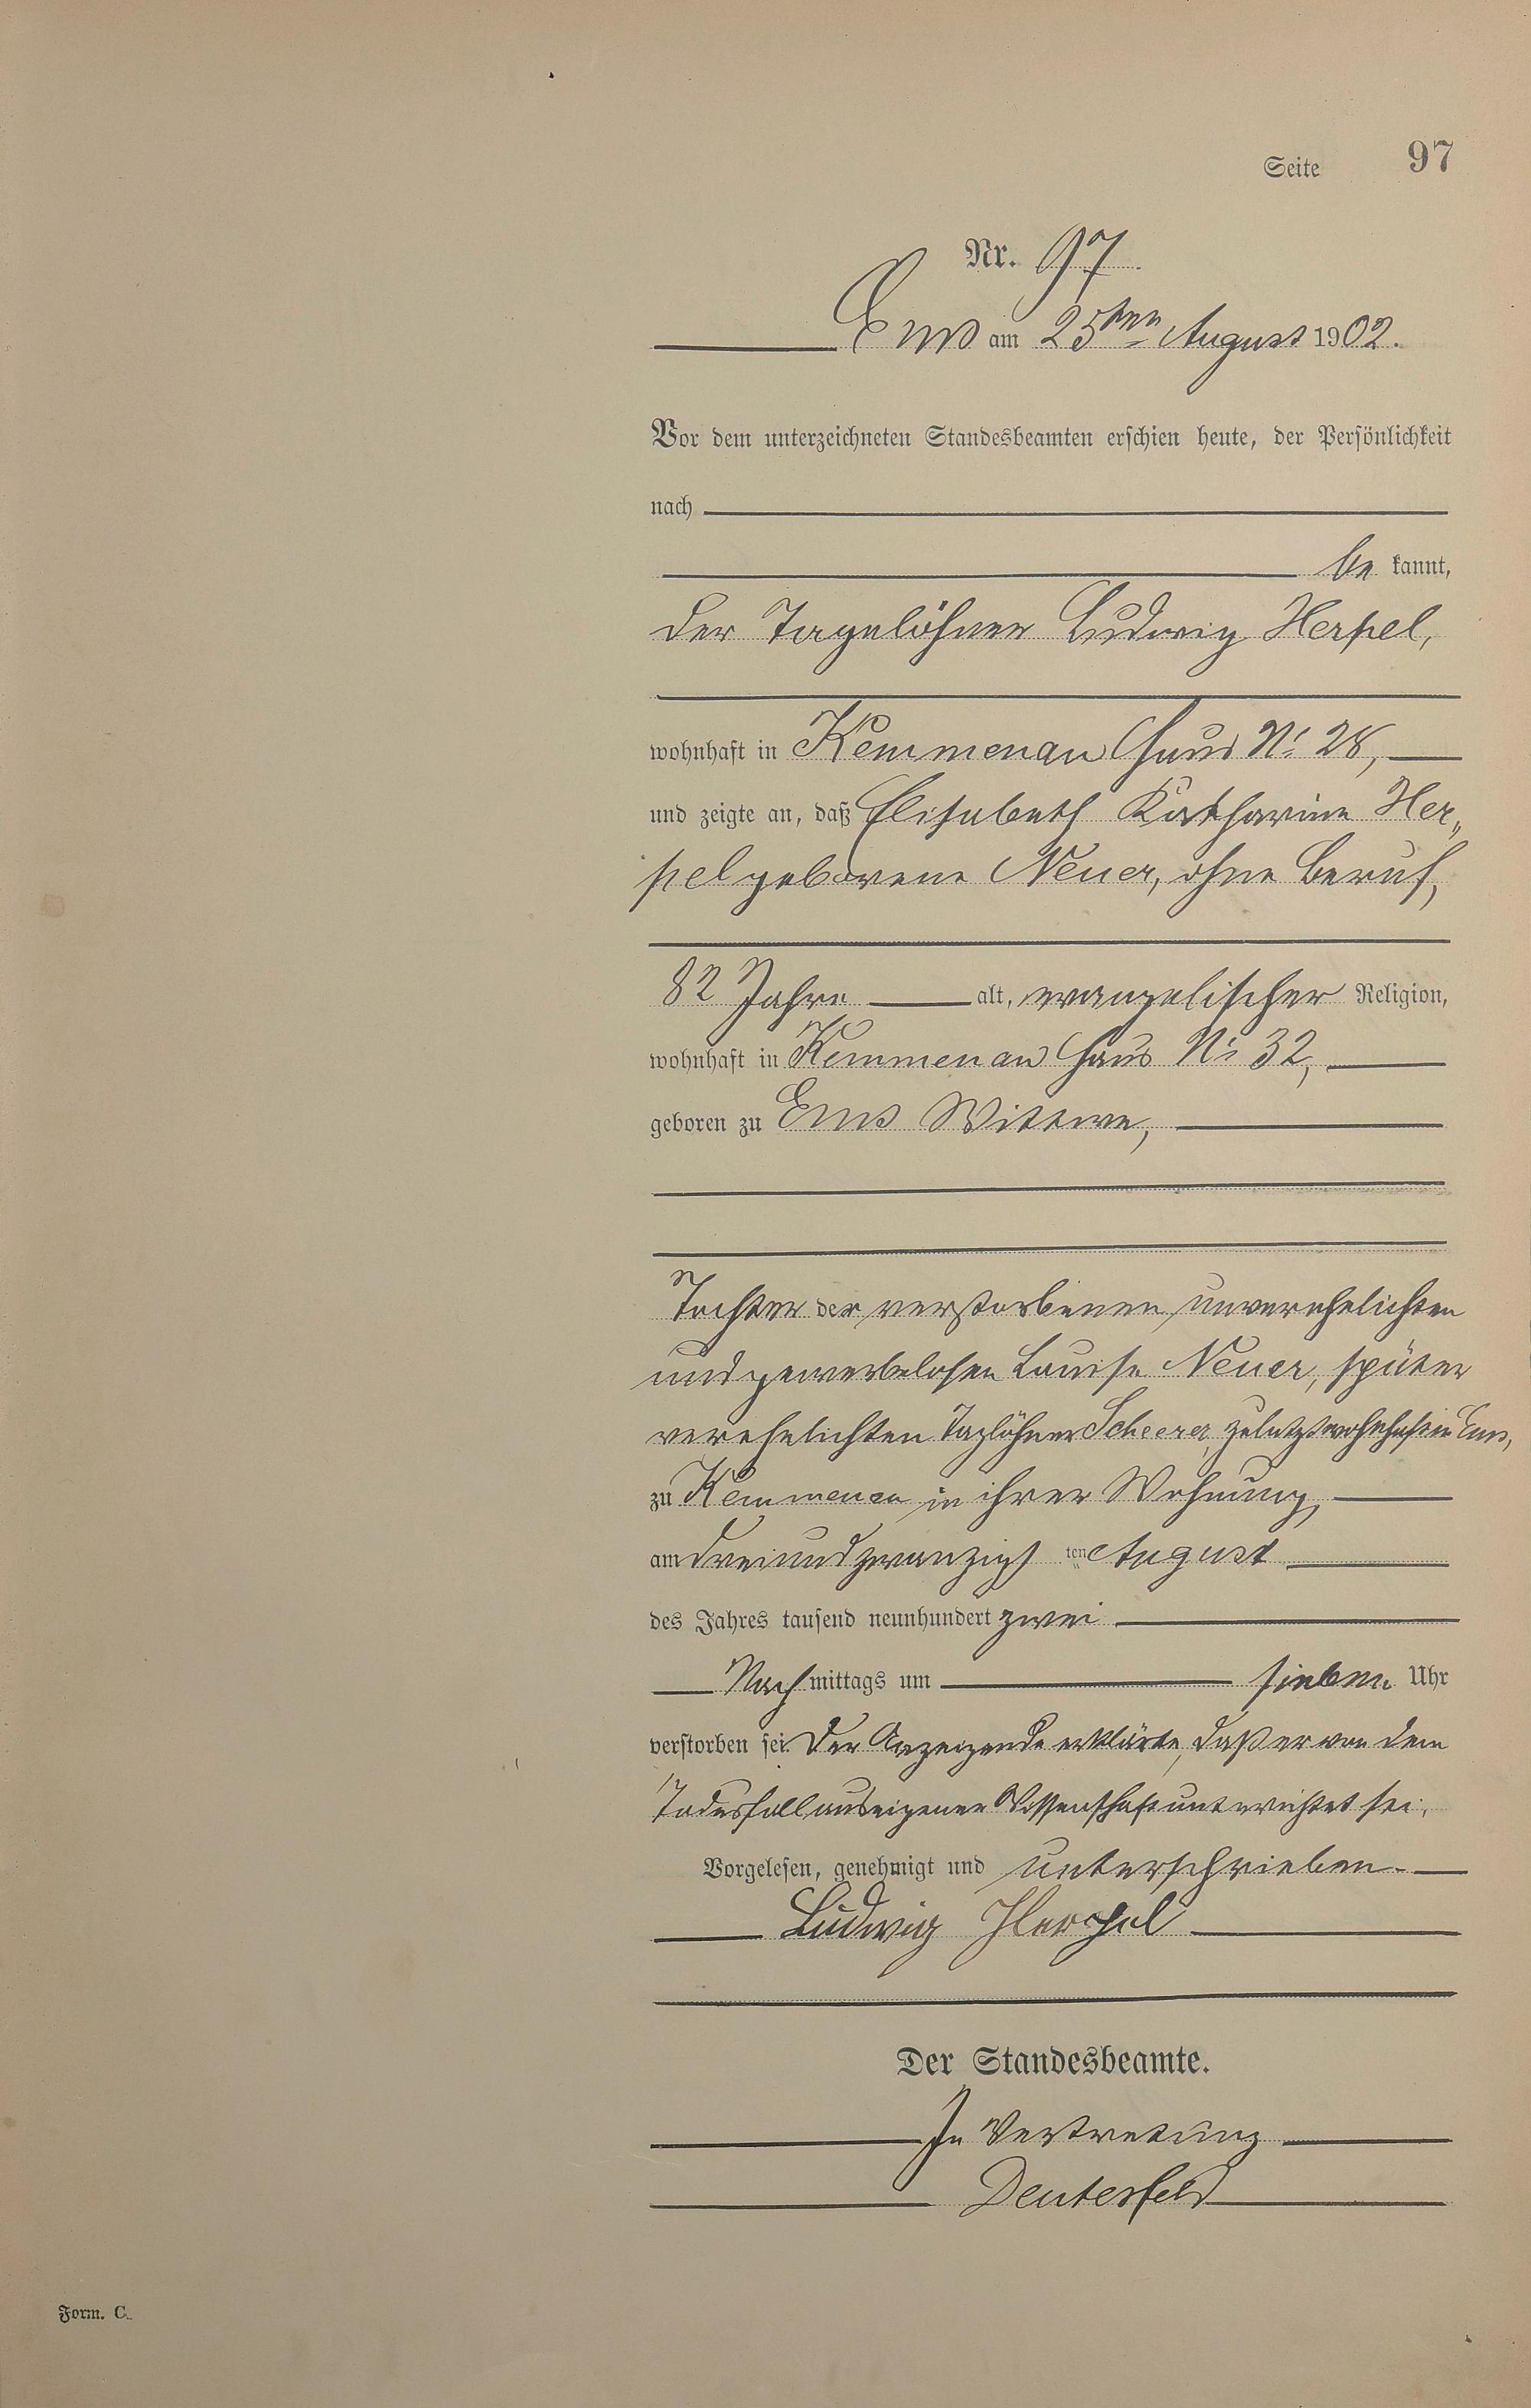 Seite 97
Nr. 97
Ems am 25ten August 1902.
Vor dem unterzeichneten Standesbeamten erschien heute, der Persönlichkeit
nach
be kannt,
der Tagelöhner Ludwig Herpel,
wohnhaft in Kemmenau Haus Nr 28,
und zeigte an, daß Elisabeth Katharine Her„
pel geborene Neuer, ohne Beruf,
82 Jahre alt, evangelischer Religion,
wohnhaft in Kemmenau Haus Nr 32,
geboren zu Ems Wittwe,
Tochter der verstorbenen unverehelichten
und gewerbelosen Louise Neuer, später
verehelichten Taglöhner Scheerer, zuletzt wohnhaft in Ems,
zu Kemmenau in ihrer Wohnung,
am dreiundzwanzigs ten August
des Jahres tausend neunhundert zwei
Nach mittags um sieben Uhr
verstorben sei. Der Anzeigende erklärte, daß er von dem
Todesfall aus eigener Wissenschaft unterrichtet sei.
Vorgelesen, genehmigt und unterschrieben.
Ludwig Herpel
Der Standesbeamte.
In Vertretung
Deutesfeld
Form. C.